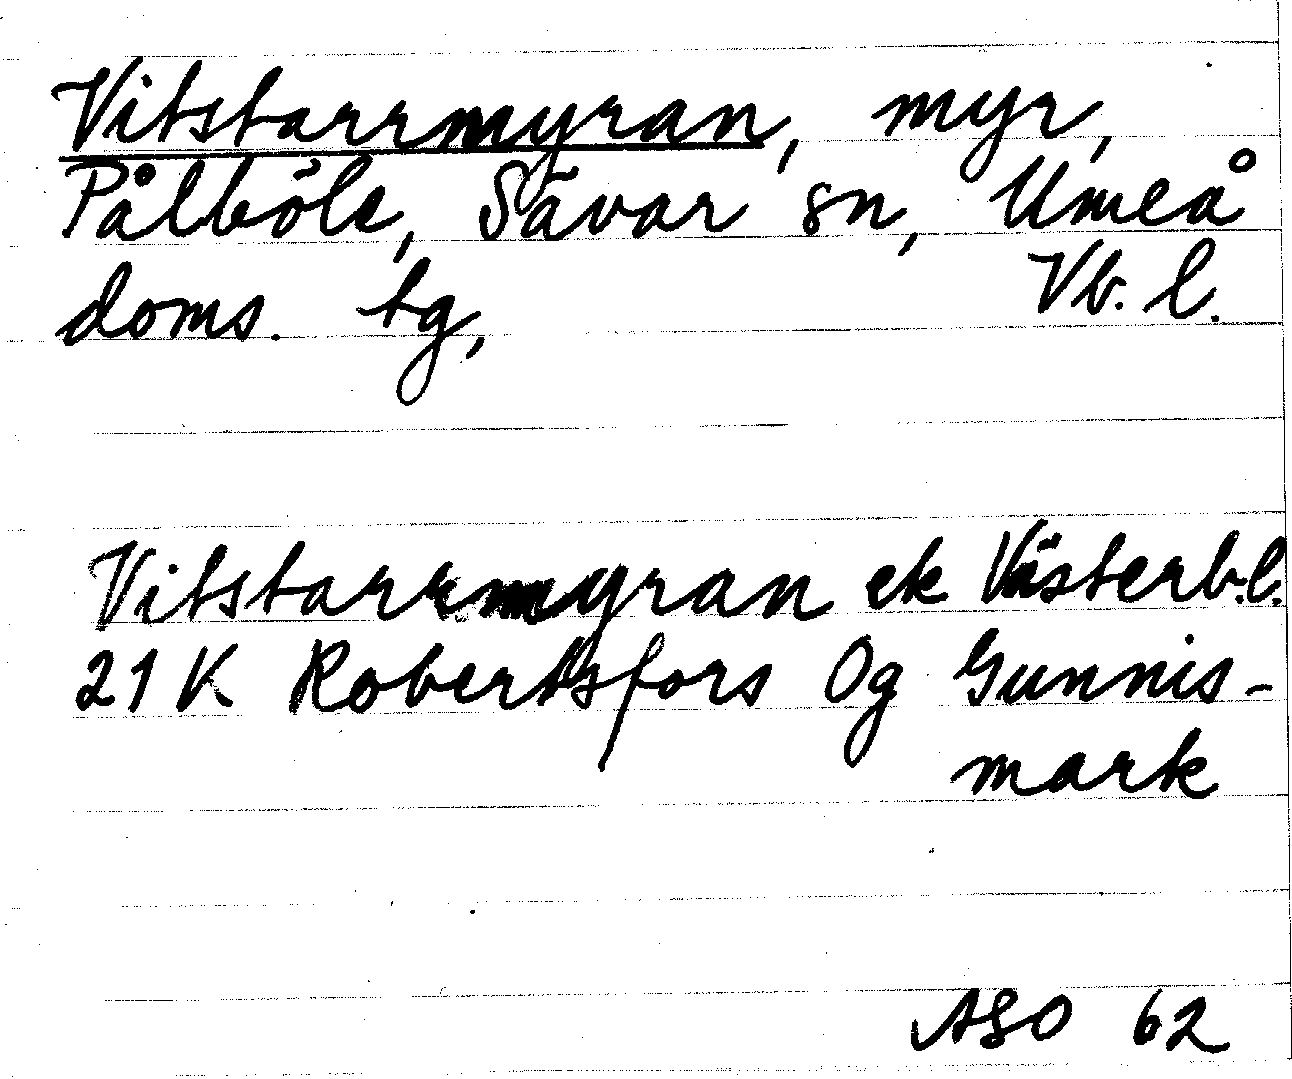 Vitstarrmyran, myr,
Pålböle, Sävar sn, Umeå
doms. tg, Vb. l.
Vitstarrmyran ek Västerb.l.
21 K Robertsfors Og Gunnis-
mark
ASO 62